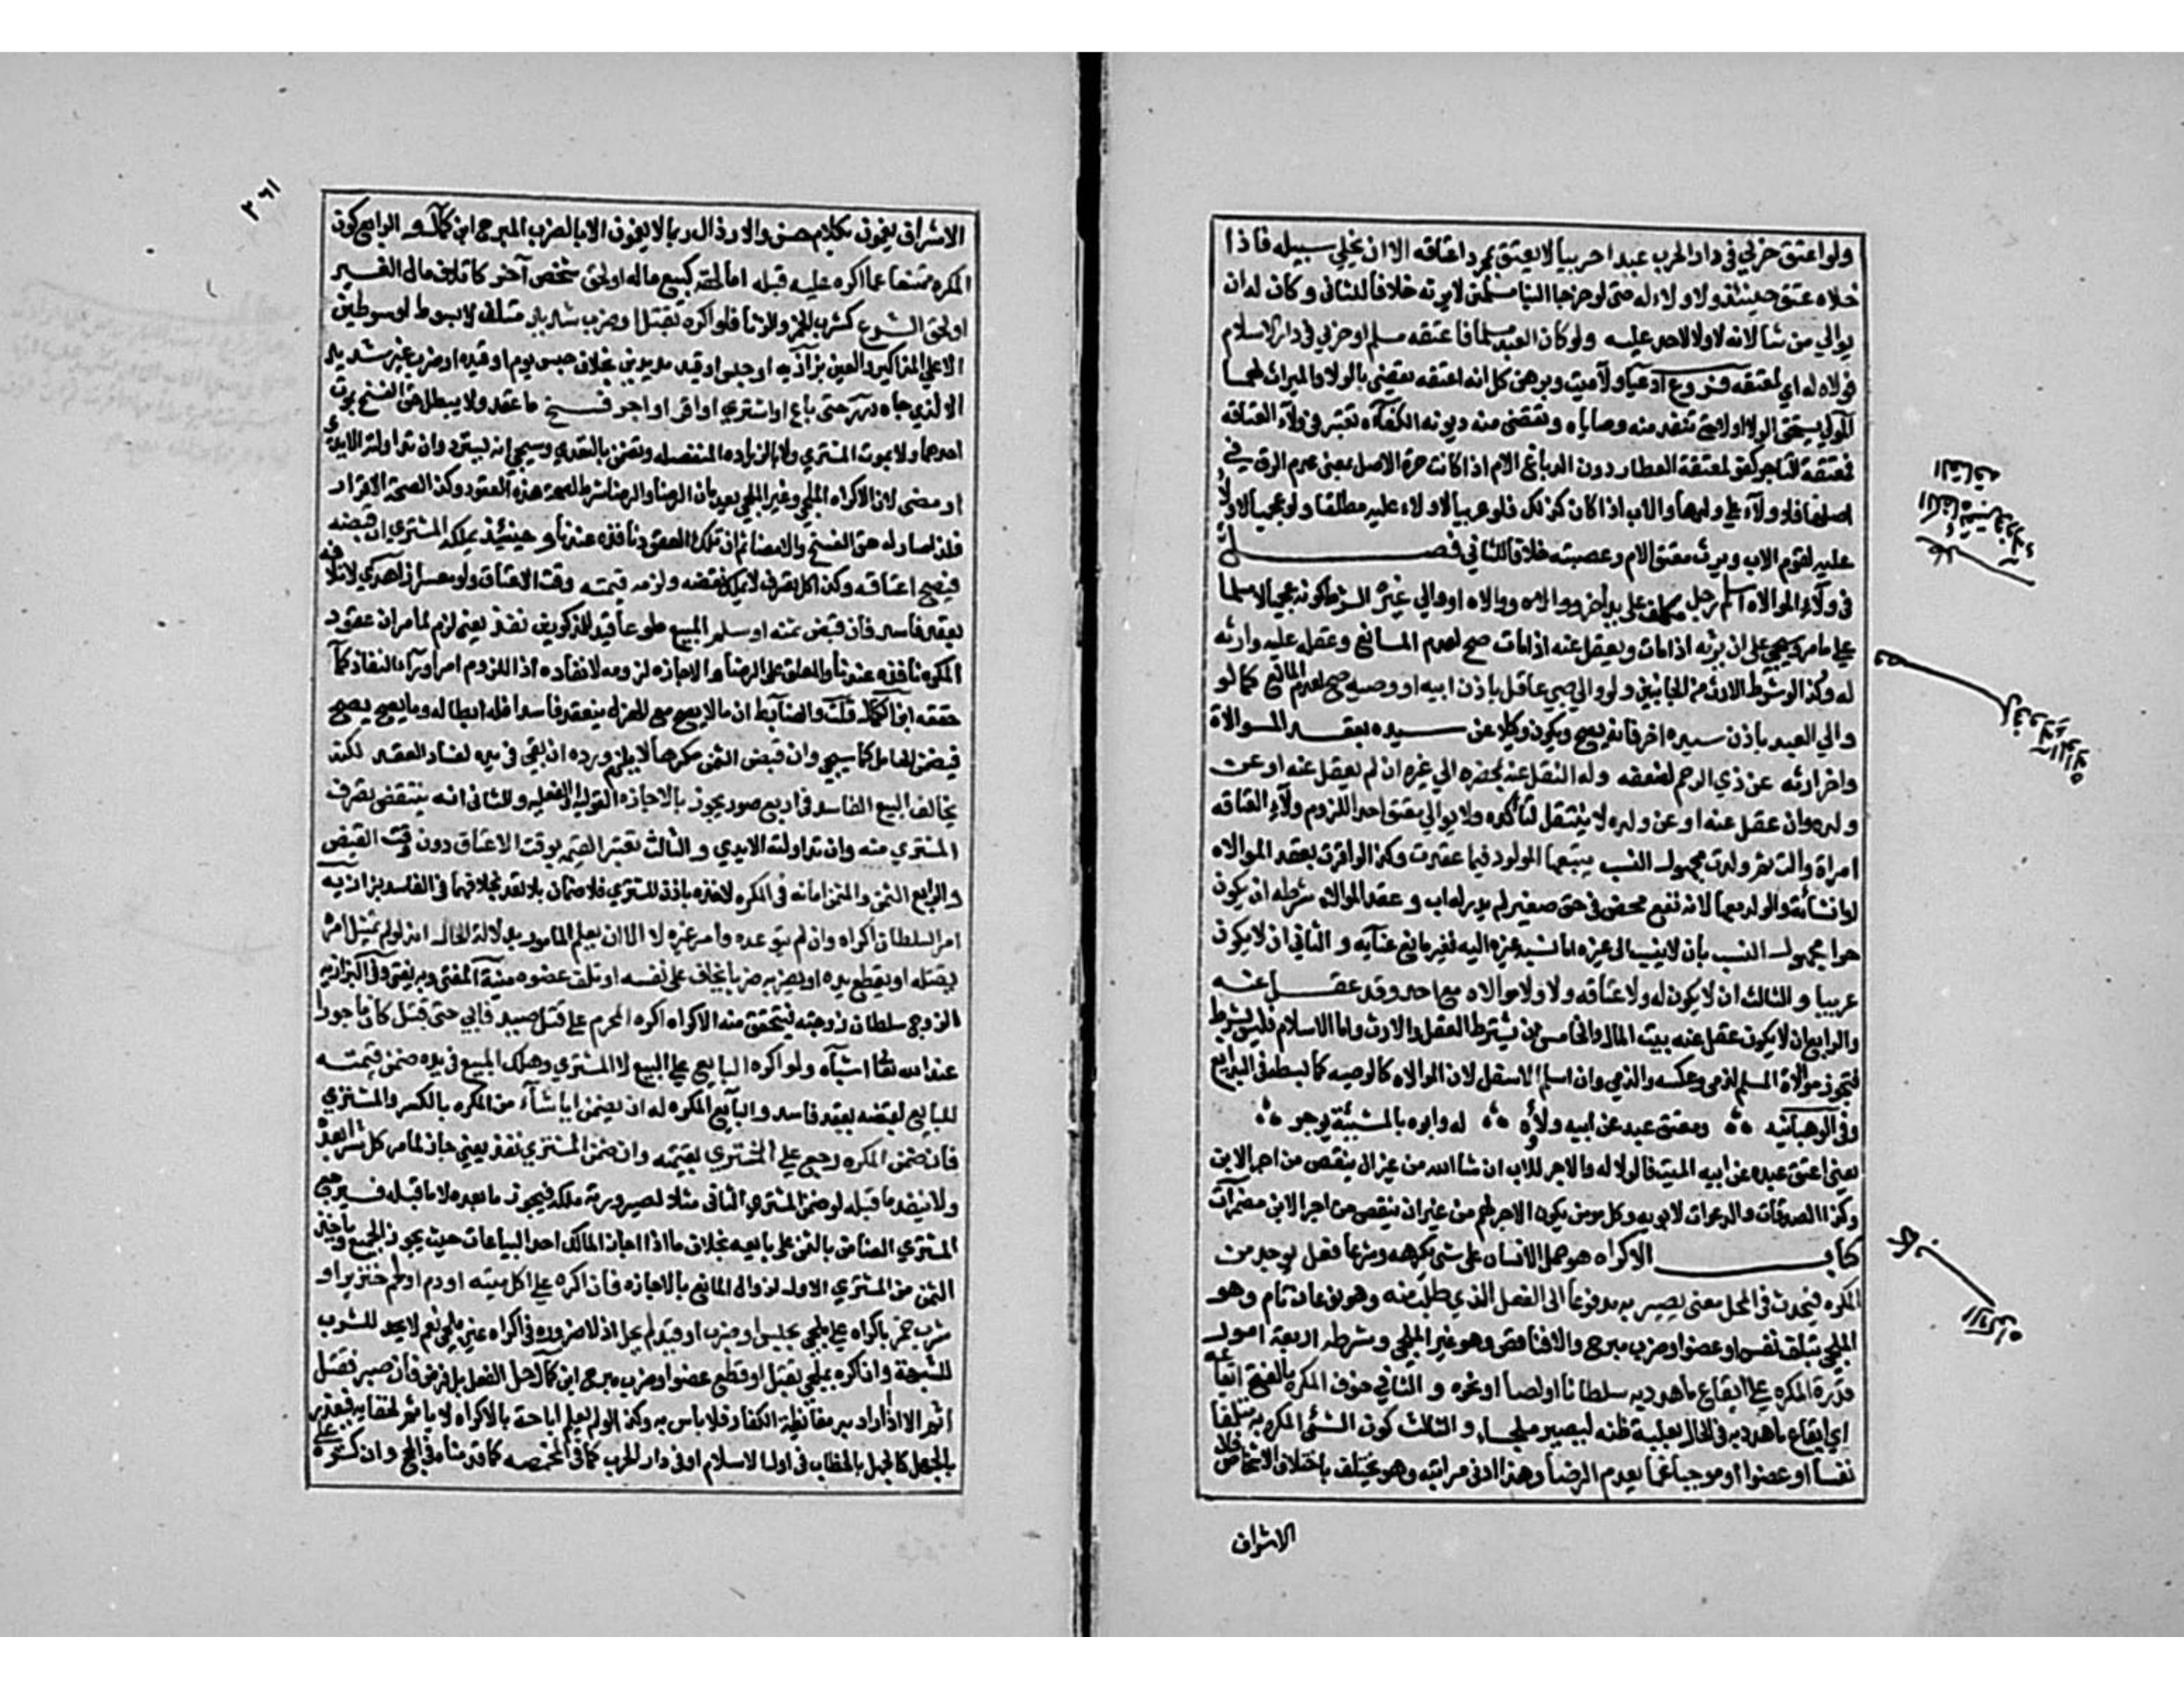 ولو اعتق حربي في دار الحرب عبدا حربيا لا يعتق بمجرد اعتاقه الا ان يخلي سبيله فاذا
خلاه عتق حينئذ ولا ولاء له حتى لو خرجا الينا مسلمين لا يرثه خلافا للثاني وكان له ان
يوالي من شا لانه لا ولا لاحد عليه ولو كان العبد مسلما فاعتقه مسلم او حربي في دار الاسلام
فولاه له اي لمعتقه فروع ادعيا ولآ ميت وبرهن كل انه اعتقه يقضى بالولا والميراث لهما
المولى يستحق الولا اولا حتى تنفذ منه وصاياه وتقضى منه ديونه الكفآه تعتبر في ولآء العتاقه
فمعتقة التاجر كفو لمعتقة العطار دون الدباغ الام اذا كانت حرة الاصل بمعنى عدم الرق في
اصلها فلا ولآء على ولدها والاب اذا كان كذلك فلو عربيا لا ولاء عليه مطلقا ولو عجميا لا ولآ
عليه لقوم الاب ويرث معتق الام وعصبته خلافا للثاني فصل
في ولآء الموالاه اسلم رجل مكلف على يد آخر ووالاه او والى غيره الشرط كونه عجميا لا مسلما
على ما مر وسيجي على ان يرثه اذا مات ويعقل عنه اذا مات صح لعدم المانع وعقله عليه وارثه
له وكذا لو شرط الارث من الجانبين ولو والى صبي عاقل باذن ابيه او وصيه صح لعدم المانع كما لو
والى العبد باذن سيده اخر فانه يصح ويكون وكيلا عن سيده بعقد الموالاة
واخر ارثه عن ذي الرحم لضعفه وله النقل عنه بمحضره الى غيره ان لم يعقل عنه او عن
ولده وان عقل عنه او عن ولده لا ينتقل لتأكده ولا يوالي معتق احدا للزوم ولآء العتاقه
امراة والت ثم ولدت مجهول النسب يتبعها المولود فيما عقدت وكذا لو اقرت بعقد الموالاه
او انشأته والولد معها لانه نفع محض في حق صغير لم يدر له اب و عقد الموالاه شرطه ان يكون
حرا مجهول النسب بان لا ينسب الى غيره اما نسبة غيره اليه فغير مانع عنآيه و الثاني ان لا يكون
عربيا و الثالث ان لا يكون له ولا عتاقه ولا ولا موالاه مع احد وقد عقل عنه
والرابع ان لا يكون عقل عنه بيت المال والخامس ان يشترط العقل والارث واما الاسلام فليس بشرط
فتجوز موالاة المسلم لذمي وعكسه والذمي وان اسلم الاسفل لان الموالاه كالوصيه كما بسط في البدايع
وفي الوهبآنيه ومعتق عبد عن ابيه ولاؤه له وابوه بالمشيئة يوجر
يعني اعتق عبده عن ابيه الميت فالولا له والاجر للاب ان شا الله من غير ان ينقص من اجر الابن
وكذا الصدقات والدعوات لابويه وكل مومن يكون الاجر لهم من غير ان ينقص من اجر الابن مضمرآت
كتاب الاكراه هو حمل الانسان على شي يكرهه وشرعا فعل يوجد من
المكره فيحدث في المحل معنى يصير به مدفوعا الى الفعل الذي طلب منه وهو نوعان تام وهو
الملجي بتلف نفس او عضو او ضرب مبرح والا فناقص وهو غير الملجي وشرطه اربعة امور
قدرة المكره على ايقاع ما هدد به سلطانا او لصا او نحوه و الثاني خوف المكره بالفتح ايقاعه
اي ايقاع ما هدد به في الحال بغلبة ظنه ليصير ملجا و الثالث كون الشئ المكره به متلفا
نفسا او عضوا او موجبا غما يعدم الرضا وهذا ادنى مراتبه وهو يختلف باختلاف الاشخاص فان
الاشراف
فصل
الاكراه
٣٦١
الاشراف يغمون بكلام خشن والارذال ربما لا يغمون الا بالضرب المبرح ابن كمآل و الرابع كون
المكره ممتنعا عما اكره عليه قبله اما لحقه كبيع ماله او لحق شخص آخر كاتلاف مال الغير
او لحق الشرع كشرب الخمر والزنا فلو اكره بقتل او ضرب شديد متلف لا بسوط او سوطين
الا على المذاكير والعين بزآزيه او حبس او قيد مديدين بخلاف حبس يوم او قيده او ضرب غير شديد
الا لذي جاه درر حتى باع او اشترى او اقر او اجر فسخ ما عقد ولا يبطل حق الفسخ بموت
احدهما ولا بموت المشتري ولا بالزياده المنفصله وتضمن بالتعدي وسيجي انه يسترد وان تداولته الايدي
او مضى لان الاكراه الملجي وغير الملجي يعدمان الرضا والرضا شرط لصحة هذه العقود وكذا لصحة الاقرار
فلذا صار له حق الفسخ والامضا ثم ان تلك العقود نافذه عندنا و حينئذ يملكه المشتري ان قبضه
فيصح اعتاقه وكذا كل تصرف لا يمكن نقضه ولزمه قيمته وقت الاعتاق ولو معسرا زاهدي لاتلافه
بعقد فاسد فان قبض ثمنه او سلم المبيع طوعا قيد للمذكورين نفذ يعني لزم لما مر ان عقود
المكره نافذه عندنا والمعلق على الرضا والاجازه لزومه لا نفاذه اذ اللزوم امر ورآء النفاذ كمآ
حققه ابن الكمآل قلت والضابط ان ما لا يصح مع الهزل ينعقد فاسدا فله ابطاله وما يصح يصح
فيضمن الحامل كما سيجي وان قبض الثمن مكرها لا يلزم ورده ان بقي في يده لفساد العقد لكنه
يخالف البيع الفاسد في اربع صور يجوز بالاجازه القوليه والفعليه و الثاني انه ينتقض تصرف
المشتري منه وان تداولته الايدي و الثالث تعتبر القيمه بوقت الاعتاق دون وقت القبض
و الرابع الثمن والمثمن امانه في المكره لاخذه باذن المشتري فلا ضمان بلا تعد بخلافهما في الفاسد بزازيه
امر السلطان اكراه وان لم يتوعده وامر غيره لا الا ان يعلم المامور بدلالة الحال انه لو لم يمتثل امره
يقتله او يقطع يده او يضربه ضربا يخاف على نفسه او تلف عضوه منية المفتي وبه يفتى وفي البزازيه
الزوج سلطان زوجته فيتحقق منه الاكراه اكره المحرم على قتل صيد فابى حتى قتل كان ماجورا
عند الله تعا اشبآه ولو اكره البايع على البيع لا المشتري وهلك المبيع في يده ضمن قيمته
للبايع لقبضه بعقد فاسد و البآيع المكره له ان يضمن ايا شآء من المكره بالكسر والمشتري
فان ضمن المكره رجع على المشتري بقيمته وان ضمن المشتري نفذ يعني جاز لما مر كل شرا بعده
ولا ينفذ ما قبله لو ضمن المشتري الثاني مثلا لصيرورته ملكه فيجوز ما بعده لا ما قبله فيرجع
المشتري الضامن بالثمن على بايعه بخلاف ما اذا اجاز المالك احد البياعات حيث يجوز الجميع وياخذ
الثمن من المشتري الاول لزوال المانع بالاجازه فان اكره على اكل ميته او دم او لحم خنزير او
شرب خمر باكراه غير ملجي بحبس او ضرب او قيد لم يحل اذ لا ضروره في اكراه غير ملجي نعم لا يحد للشرب
للشبهة وان اكره بملجي بقتل او قطع عضو او ضرب مبرح ابن كمآل حل الفعل بل فرض فان صبر فقتل
اثم الا اذا اراد به مغايظة الكفار فلا باس به وكذا لو لم يعلم اباحة بالاكراه لا ياثم لخفايه فيعذر
بالجهل كالجهل بالخطاب في اول الاسلام او في دار الحرب كما في المخمصه كما قدمناه في الحج وان اكره على